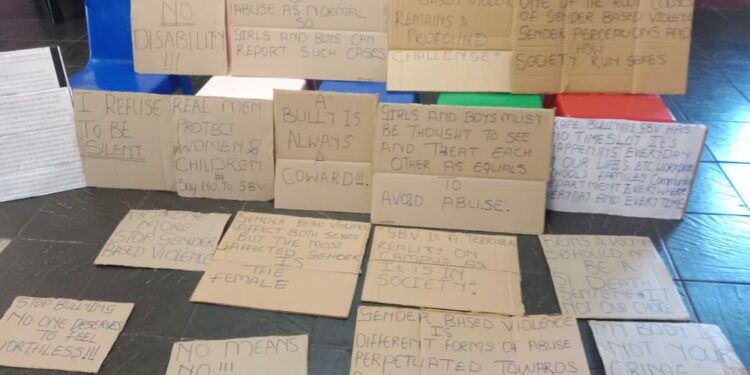 NO
DISABILITY
!!!
ABUSE AS NORMAL
SO
GIRLS AND BOYS CAN
REPORT SUCH CASES
BASED VIOLENCE
REMAINS A
PROFOUND
CHALLENGE"
ONE OF THE ROOT CAUSES
OF GENDER BASED VIOLENCE
GENDER PERCEPTIONS AND
HOW
SOCIETY RUN SEXES
I REFUSE
TO BE
SILENT
REAL MEN
PROTECT
WOMEN &
CHILDREN
#
Say NO TO GBV
A
BULLY IS
ALWAYS
A
COWARD!!!
GIRLS AND BOYS MUST
BE THOUGHT TO SEE
AND TREAT EACH
OTHER AS EQUALS
TO
AVOID ABUSE.
RAPE, BULLY, GBV HAS
NO TIMESLOT IT'S
HAPPENING EVERYDAY
IN OUR LIVES AT WORKPLACE
SCHOOLS FAMILIES
DEPARTMENT EVERYWHERE
EVERYDAY AND EVERYTIME
NO ONE
MORE
STOP GENDER
BASED VIOLENCE
GENDER BASED VIOLENCE
AFFECT BOTH SEXES
BUT THE MOST
AFFECTED GENDER
IS
THE
FEMALE
"GBV IS A TERRIBLE
REALITY ON
CAMPUS AS
IT IS IN
SOCIETY"
BEING A WOMAN
SHOULD NOT
BE A
DEATH
SENTENCE
NOT OUR CHOICE
STOP BULLYING
NO ONE DESERVES
TO FEEL
WORTHLESS!!!
NO MEANS
NO !!!
GENDER BASED VIOLENCE
IS
DIFFERENT FORMS OF ABUSE
PERPETUATED TOWARDS
MY BODY IS
NOT YOUR
CRIME